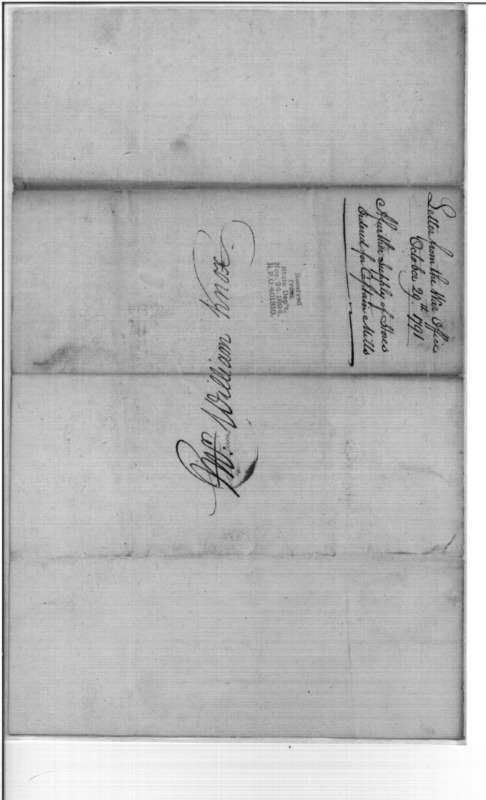 Letter from the War Office
October 29th 1791
A further Supply of Stores
Ordered for Captain Mills
Received
from
State Dep't,
Nov. 24, 1894,
R.P.O. 401310.
William Knox